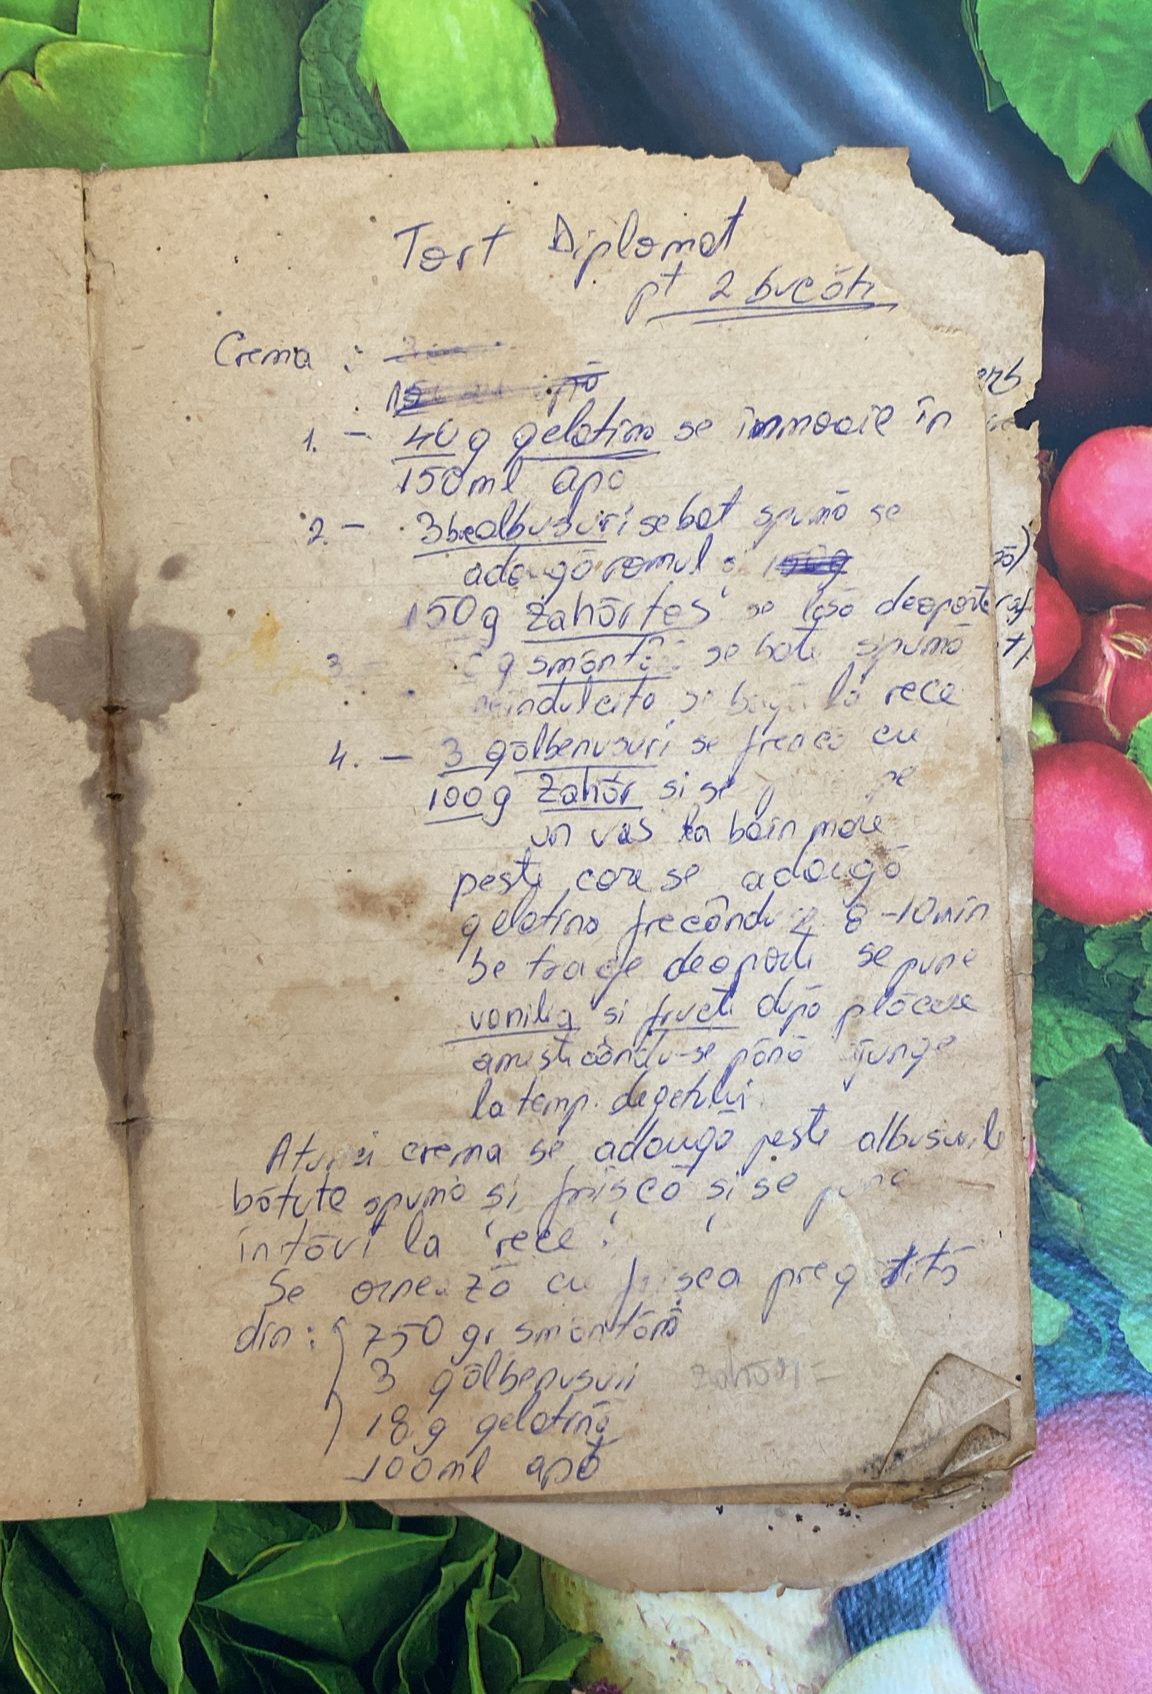 Tort Diplomat
pt 2 bucăți
Crema :
apă
1. - 40 g gelatina se înmoaie în
150ml apa
2. - 3 albusuri se bat spumă se
adaugă romul și
150g zahăr tos se lasă deoparte
3 g smântână se bate spumă
neîndulcită, și bagă la rece
4. - 3 gălbenusuri se freacă cu
100g zahăr si se pe
un vas la bain marie
peste care se adaugă
gelatina frecându 8-10min
Se trage deoparte se pune
vanilia si fructe după plăcere
amestecându-se până ajunge
la temp. degetului.
Atunci crema se adaugă peste albusurile
bătute spumă si frișcă și se pune
în tăvi la rece.
Se ornează cu frișca pregătită
din: 750 gr smântână
3 gălbenusuri zahăr -
18 g gelatină
100ml apă